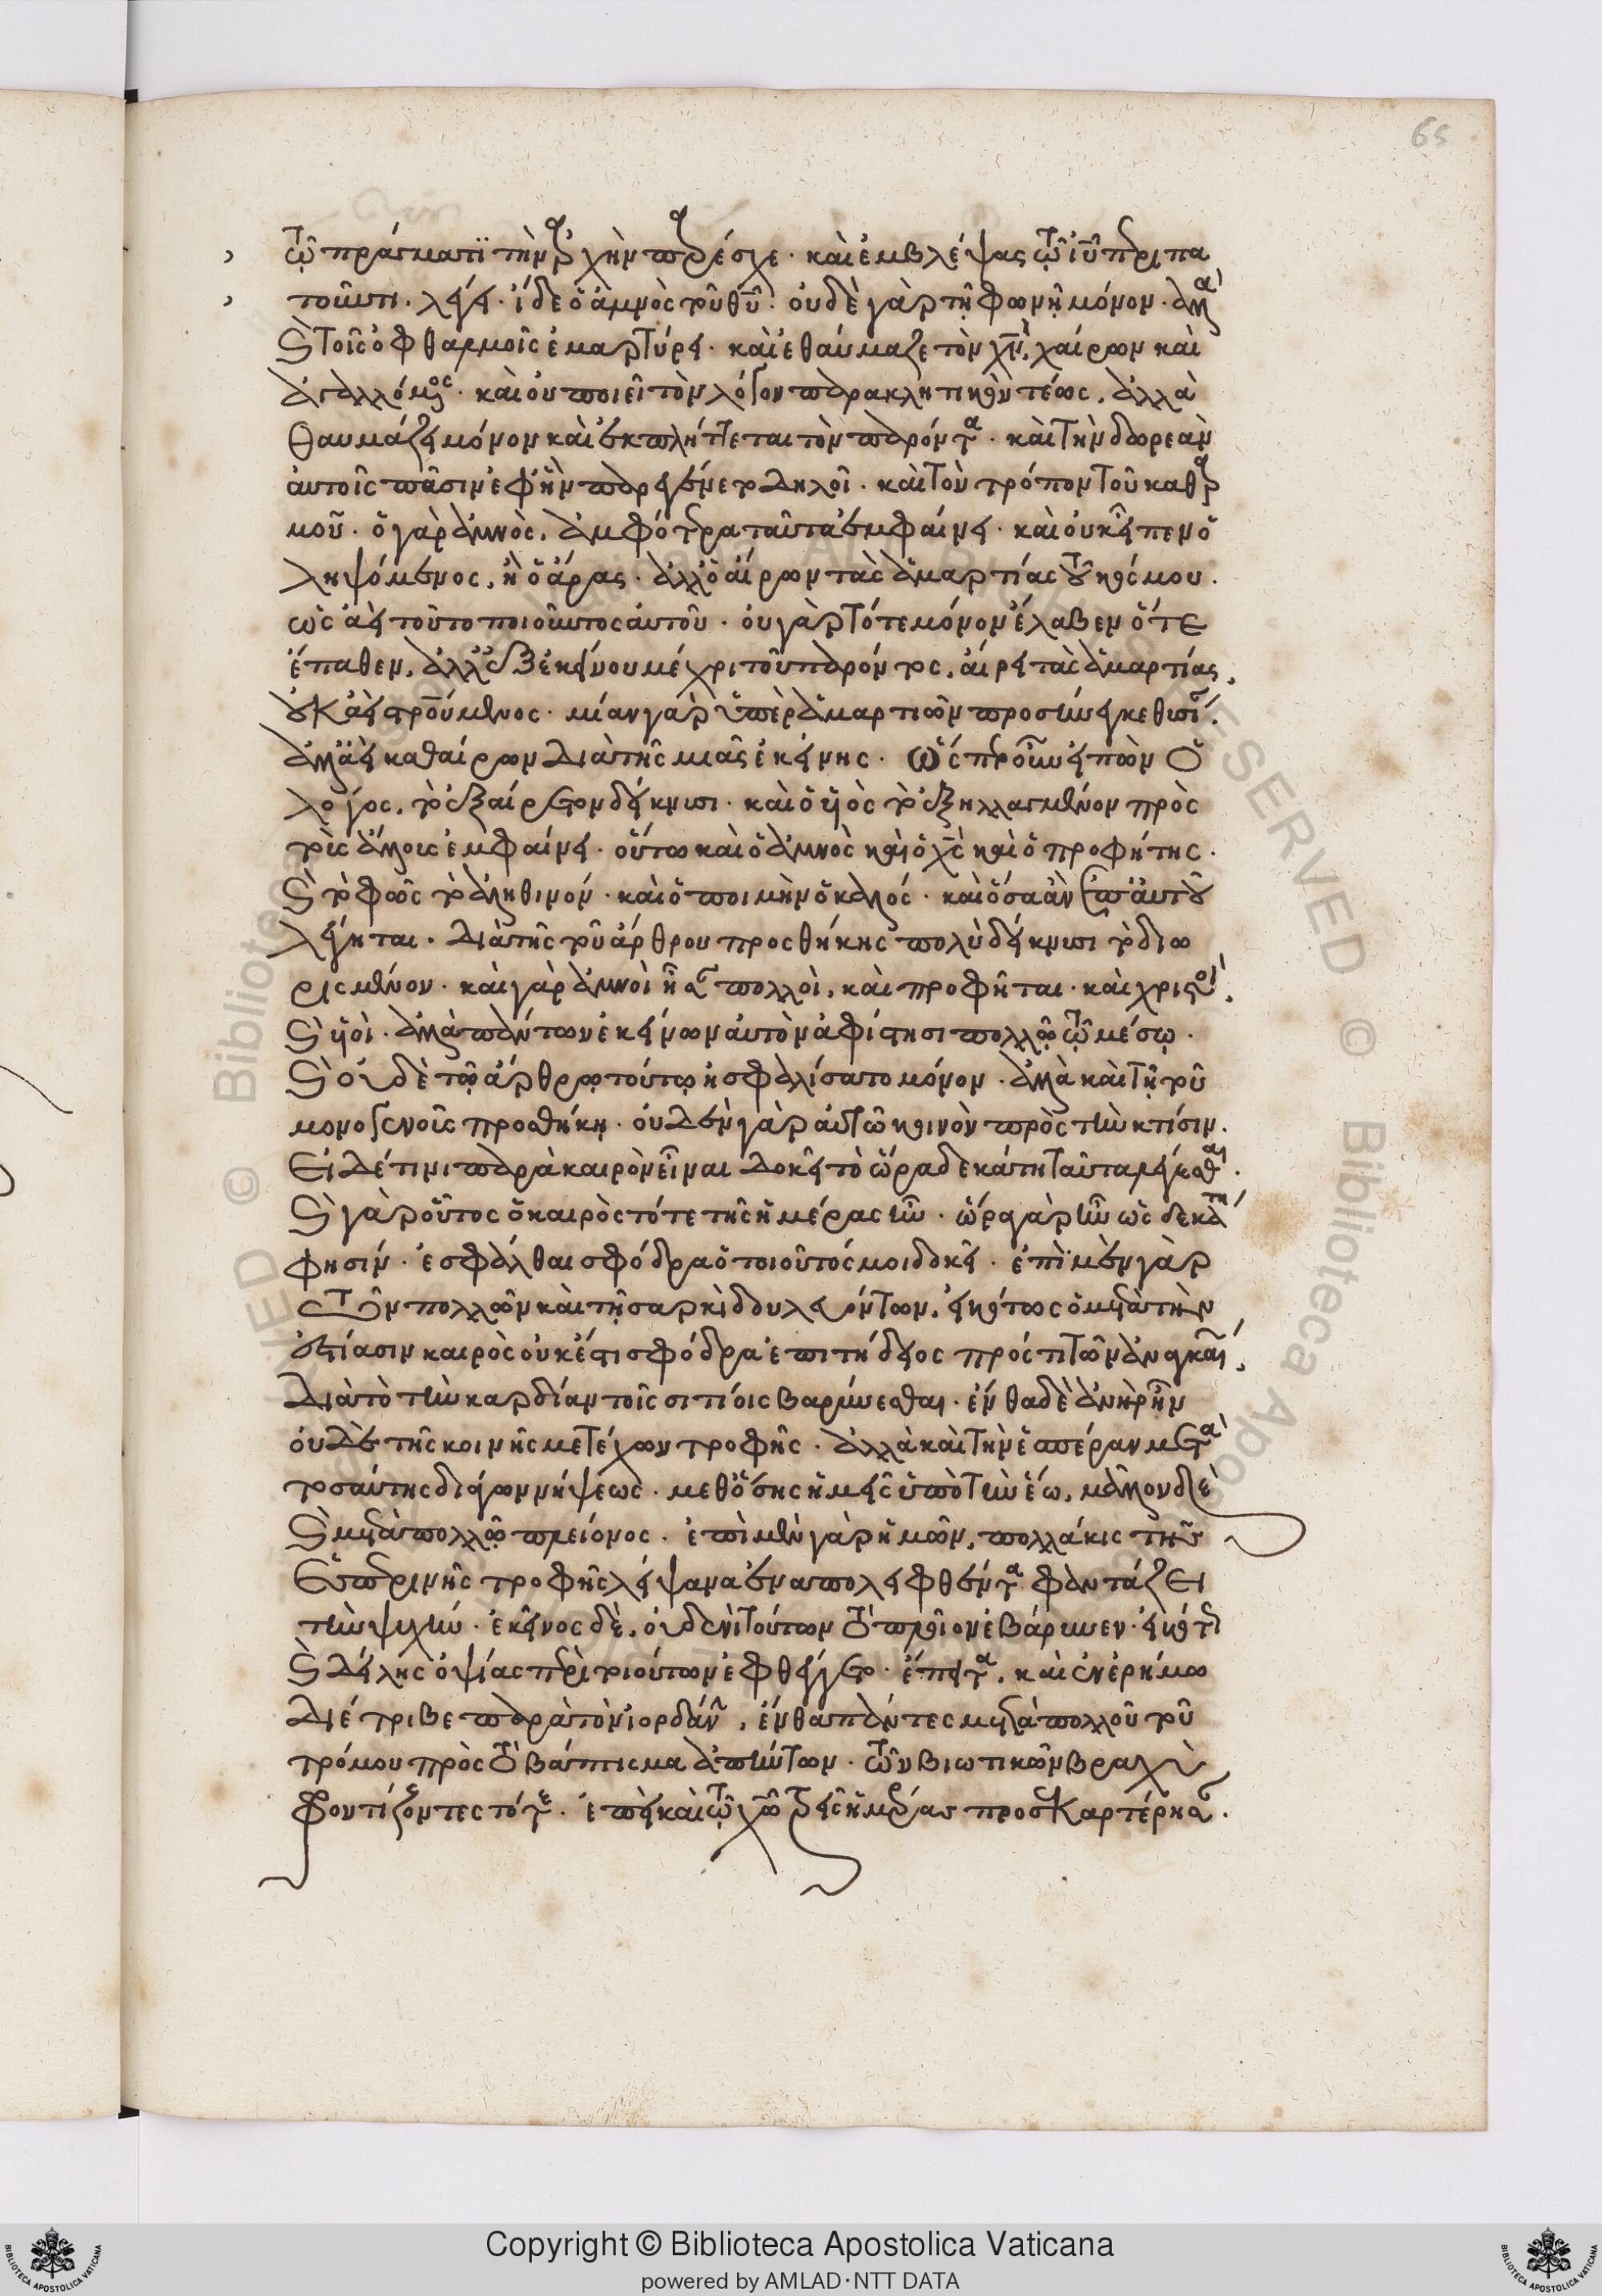 65
τῷ πράγματι τὴν ἀρχὴν παρέσχε· καὶ ἐμβλέψας τῷ ιυ περιπα
τοῦντι, λέγει· ἴδε ὁ ἀμνὸς τοῦ θυ· οὐδὲ γὰρ τῇ φωνῇ μόνον, ἀλλὰ
καὶ τοῖς ὀφθαλμοῖς ἐμαρτύρει· καὶ ἐθαύμαζε τὸν χν, χαίρων καὶ
ἀγαλλόμενος· καὶ οὐ ποιεῖ τὸν λόγον παρακλητικὸν τέως, ἀλλὰ
θαυμάζει μόνον καὶ ἐκπλήττεται τὸν παρόντα· καὶ τὴν δωρεὰν
αὐτοῖς πᾶσιν ἐφ' ἣν παρεγένετο δηλοῖ· καὶ τὸν τρόπον τοῦ καθαρ
μοῦ· ὁ γὰρ ἀμνὸς, ἀμφότερα ταῦτα ἐμφαίνει· καὶ οὐκ εἶπεν ὁ
ληψόμενος, ἢ ὁ ἄρας· ἀλλ' ὁ αἴρων τὰς ἁμαρτίας τοῦ κόσμου·
ὡς ἀεὶ τοῦτο ποιοῦντος αὐτοῦ· οὐ γὰρ τότε μόνον ἔλαβεν ὅτε
ἔπαθεν, ἀλλ' ἐξ ἐκείνου μέχρι τοῦ παρόντος, αἴρει τὰς ἁμαρτίας,
οὐκ ἀεὶ σταυρούμενος· μίαν γὰρ ὑπὲρ ἁμαρτιῶν προσήνεγκε θυσίαν,
ἀλλ' ἀεὶ καθαίρων διὰ τῆς μιᾶς ἐκείνης· ὥσπερ οὖν εἰπὼν ὁ
λόγος, τὸ ἐξαίρετον δείκνυσι· καὶ ὁ υἱὸς τὸ ἐξηλλαγμένον πρὸς
τοὺς ἄλλους ἐμφαίνει· οὕτω καὶ ὁ ἀμνὸς καὶ ὁ χς καὶ ὁ προφήτης·
καὶ τὸ φῶς τὸ ἀληθινόν· καὶ ὁ ποιμὴν ὁ καλός· καὶ ὅσα ἂν ἐπ' αὐτοῦ
λέγηται· διὰ τῆς τοῦ ἄρθρου προσθήκης πολὺ δείκνυσι τὸ διω
ρισμένον· καὶ γὰρ ἀμνοὶ ἦσαν πολλοὶ, καὶ προφῆται· καὶ χριστοὶ,
καὶ υἱοὶ· ἀλλὰ πάντων ἐκείνων αὐτὸν ἀφίστησι πολλῷ τῷ μέσῳ·
καὶ οὐδὲ τῷ ἄρθρῳ τούτῳ ἠσφαλίσατο μόνον· ἀλλὰ καὶ τῇ τοῦ
μονογενοῦς προσθήκῃ· οὐδὲν γὰρ αὐτῷ κοινὸν πρὸς τὴν κτίσιν·
Εἰ δέ τινι παρὰ καιρὸν εἶναι δοκεῖ τὸ ὥρα δεκάτη ταῦτα λέγεσθαι·
καὶ γὰρ οὗτος ὁ καιρὸς τότε τῆς ἡμέρας ἦν· ὥρα γὰρ ἦν ὡς δεκάτη
φησίν· ἐσφάλθαι σφόδρα ὁ τοιοῦτός μοι δοκεῖ· ἐπὶ μὲν γὰρ
τῶν πολλῶν καὶ τῇ σαρκὶ δουλευόντων, εἰκότως ὁ μετὰ τὴν
ἑστίασιν καιρὸς οὐκ ἔστι σφόδρα ἐπιτήδειος πρός τι τῶν ἀναγκαίων,
διὰ τὸ τὴν καρδίαν τοῖς σιτίοις βαρύνεσθαι· ἐνθαδὲ ἀνὴρ ἦν
οὐδὲ τῆς κοινῆς μετέχων τροφῆς· ἀλλὰ καὶ τὴν ἑσπέραν μετὰ
τοσαύτης διάγων νήψεως· μεθ' ὅσης ἡμεῖς ὑπὸ τὴν ἕω, μᾶλλον δὲ
καὶ μετὰ πολλῷ πλείονος· ἐπὶ μὲν γὰρ ἡμῶν, πολλάκις τῆς
ἑσπερινῆς τροφῆς λείψανα ἐναπολειφθέντα φαντάζει
τὴν ψυχήν· ἐκεῖνος δὲ, οὐδενὶ τούτων τὸ πλοῖον ἐβάρυνεν· εἰκότως
καὶ δείλης ὀψίας περὶ τοιούτων ἐφθέγγετο· ἔπειτα, καὶ ἐν ἐρήμω
διέτριβε παρὰ τὸν ἰορδάνην, ἔνθα πάντες μετὰ πολλοῦ τοῦ
τρόμου πρὸς τὸ βάπτισμα ἀπήντων· τῶν βιωτικῶν βραχὺ
φροντίζοντες τότε· ἐπεὶ καὶ τῷ χω τρεῖς ἡμέρας προσεκαρτέρησαν·
Copyright © Biblioteca Apostolica Vaticana
powered by AMLAD·NTT DATA